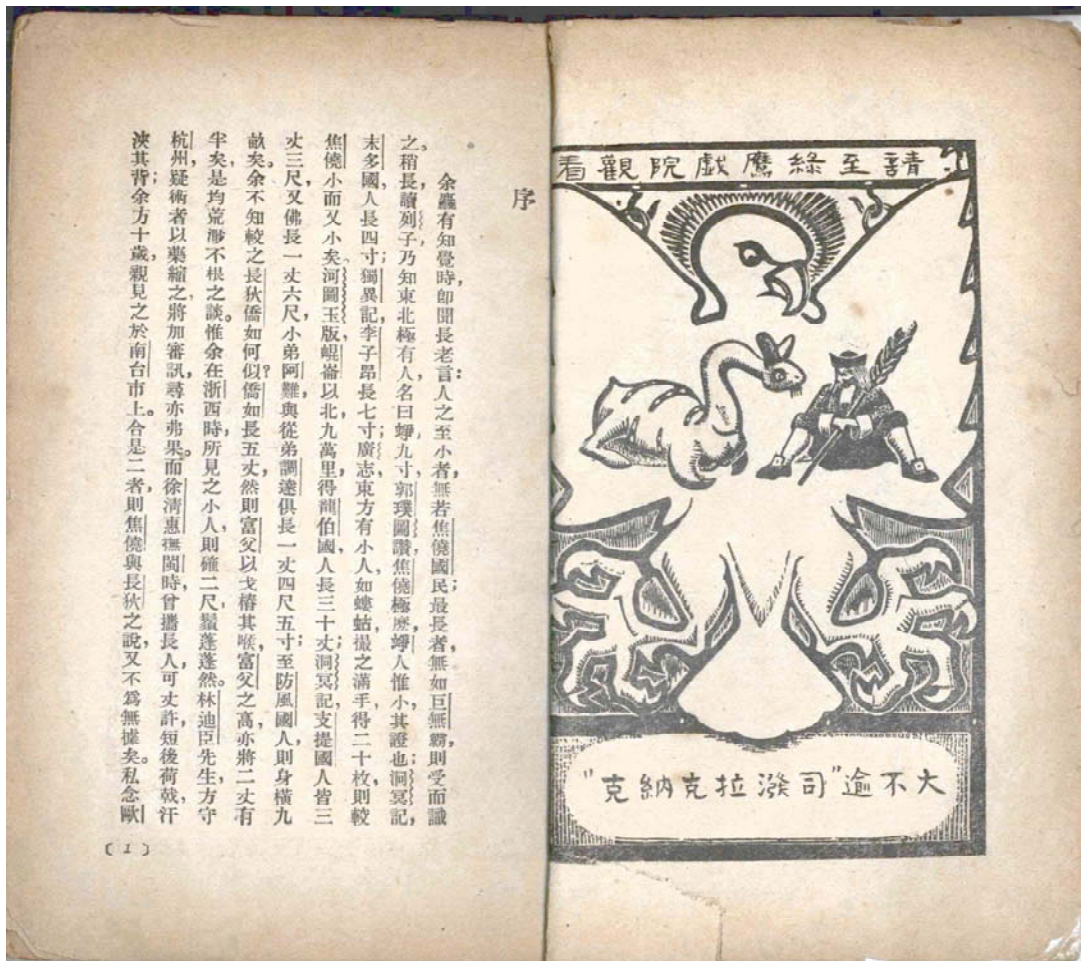 請至綠鷹戲院觀看
大不逾"司潑拉克納克"
序
余蠶有知覺時,卽聞長老言:人之至小者,無若焦僥國民;最長者,無如巨無霸,則受而識
之。稍長,讀列子,乃知東北極有人,名曰竫,九寸郭璞圖讚,焦僥極麽,竫人惟小,其證也;洞冥記,
末多國人長四寸;獨異記,李子昂長七寸;廣志東方有小人,如螻蛄撮之滿手,得二十枚,則較
焦僥小而又小矣。河圖玉版,崐崙以北,九萬里,得龍伯國,人長三十丈;洞冥記,支提國人皆三
丈三尺,又佛長一丈六尺,小弟阿難,與從弟調達俱長一丈四尺五寸;至防風國人,則身橫九
畝矣。余不知較之長狄僑如何似?僑如長五丈,然則富父以戈樁其喉,富父之高,亦將二丈有
半矣,是均荒渺不根之談。惟余在浙西時,所見之小人,則確二尺,鬚蓬蓬然。林迪臣先生,方守
杭州,疑術者以藥縮之,將加審訊,尋亦弗果。而徐清惠撫閩時,曾攜長人可丈許,短後荷戟,汗
浹其背;余方十歲,觀見之於南台市上。合是二者,則焦僥與長狄之說,又不爲無據矣。私念歐
(1)